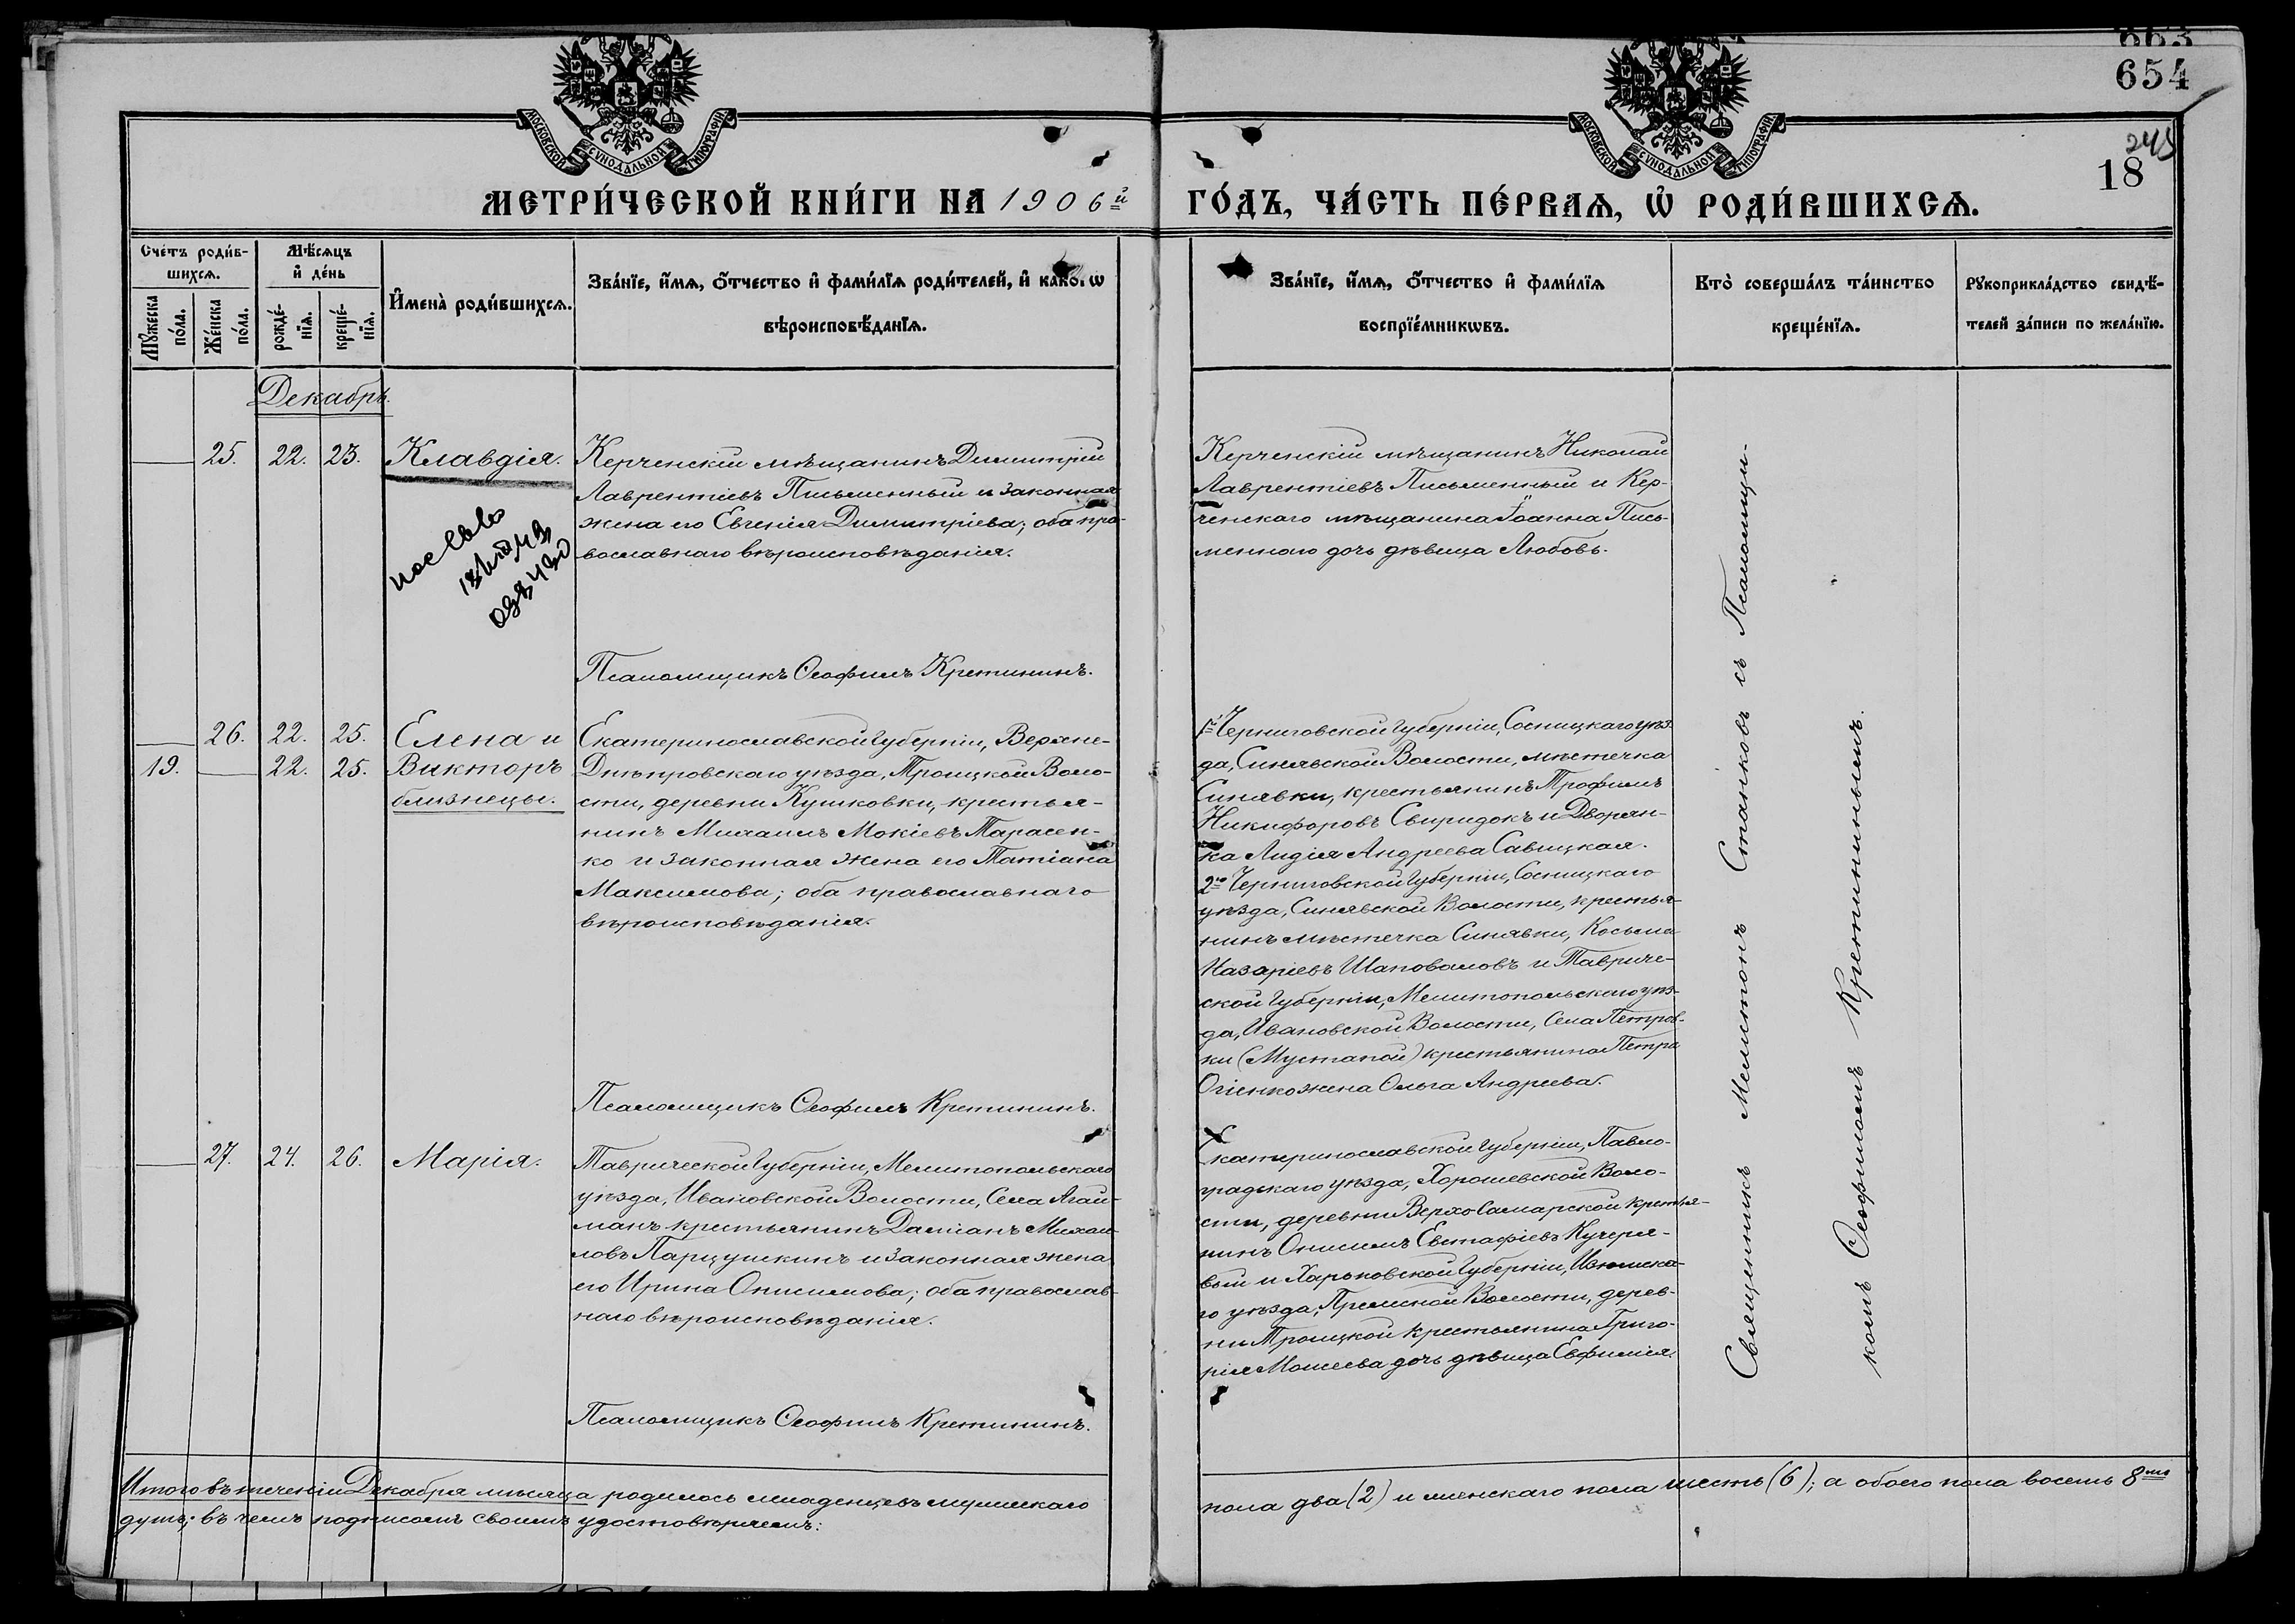 663
654
245
18
МОСКОВСКОЙ СУНОДАЛЬНОЙ ТИПОГРАФІИ
МОСКОВСКОЙ СУНОДАЛЬНОЙ ТИПОГРАФІИ
МЕТРИ́ЧЕСКОЙ КНИ́ГИ НА 1906й ГО́ДЪ, ЧА́СТЬ ПЕ́РВАѦ, Ѡ҆ РОДИ́ВШИХСѦ.
Сче́тъ роди́в-
шихсѧ.
Мꙋ́жеска
по́ла.
Же́нска
по́ла.
Мѣ́сѧцъ
и҆ де́нь
рожде́-
нїѧ.
креще́-
нїѧ.
И҆мена̀ роди́вшихсѧ.
Зва́нїе, и҆́мѧ, ѻ҆́тчество и҆ фами́лїѧ роди́телей, и҆ како́гѡ
вѣроисповѣ́данїѧ.
Зва́нїе, и҆́мѧ, ѻ҆́тчество и҆ фами́лїѧ
воспрїе́мникѡвъ.
Кто̀ соверша́лъ та́инство
креще́нїѧ.
Рꙋкоприкла́дство свидѣ́-
телей за́писи по жела́нїю.
Декабрь.
25. 22. 23. Клавдія.
Керченскій мѣщанинъ Димитрій
Лаврентіевъ Письменный и законная
жена его Евгенія Димитріева; оба пра-
вославнаго вѣроисповѣданія.
Псаломщикъ Ѳеофилъ Кретининъ.
Керченскій мѣщанинъ Николай
Лаврентіевъ Письменный и Кер-
ченскаго мѣщанина Іоанна Пись-
меннаго дочь дѣвица Любовь.
26. 22. 25. Елена и
19. 22. 25. Викторъ
близнецы.
Екатеринославской Губерніи, Верхне-
Днѣпровскаго уѣзда, Троицкой Воло-
сти, деревни Кушковки, крестья-
нинъ Михаилъ Мокіевъ Тарасен-
ко и законная жена его Татіана
Максимова; оба православнаго
вѣроисповѣданія.
Псаломщикъ Ѳеофилъ Кретининъ.
1й Черниговской Губерніи, Сосницкаго уѣз-
да, Синявской Волости, мѣстечка
Синявки, крестьянинъ Трофимъ
Никифоровъ Свиридокъ и Дворян-
ка Лидія Андреева Савицкая.
2го Черниговской Губерніи, Сосницкаго
уѣзда, Синявской Волости, крестья-
нинъ мѣстечка Синявки, Косьма
Назаріевъ Шаповаловъ и Тавриче-
ской Губерніи, Мелитопольскаго уѣз-
да, Ивановской Волости, Села Петров-
ки (Мустапой) крестьянина Петра
Огіенко жена Ольга Андреева.
27. 24. 26. Марія.
Таврической Губерніи, Мелитопольскаго
уѣзда, Ивановской Волости, Села Агай-
манъ крестьянинъ Даміанъ Михаи-
ловъ Парцушкинъ и законная жена
его Ирина Онисимова; оба православ-
наго вѣроисповѣданія.
Псаломщикъ Ѳеофилъ Кретининъ.
Екатеринославской Губерніи, Павло-
градскаго уѣзда, Хорошевской Воло-
сти, деревни Верхо Самарской крестья-
нинъ Онисимъ Евстафіевъ Кучеря-
вый и Харьковской Губерніи, Изюмска-
го уѣзда, Волости, дерев-
ни Троицкой крестьянина Григо-
рія Моисеева дочь дѣвица Евфимія.
Священникъ Мелитонъ Станковъ съ Псаломщи-
комъ Ѳеофиломъ Кретининымъ.
Итого въ теченіи Декабря мѣсяца родилось младенцевъ мужескаго пола два (2) и женскаго пола шесть (6); а обоего пола восемь 8мь
душъ; въ чемъ подписомъ своимъ удостовѣряемъ: